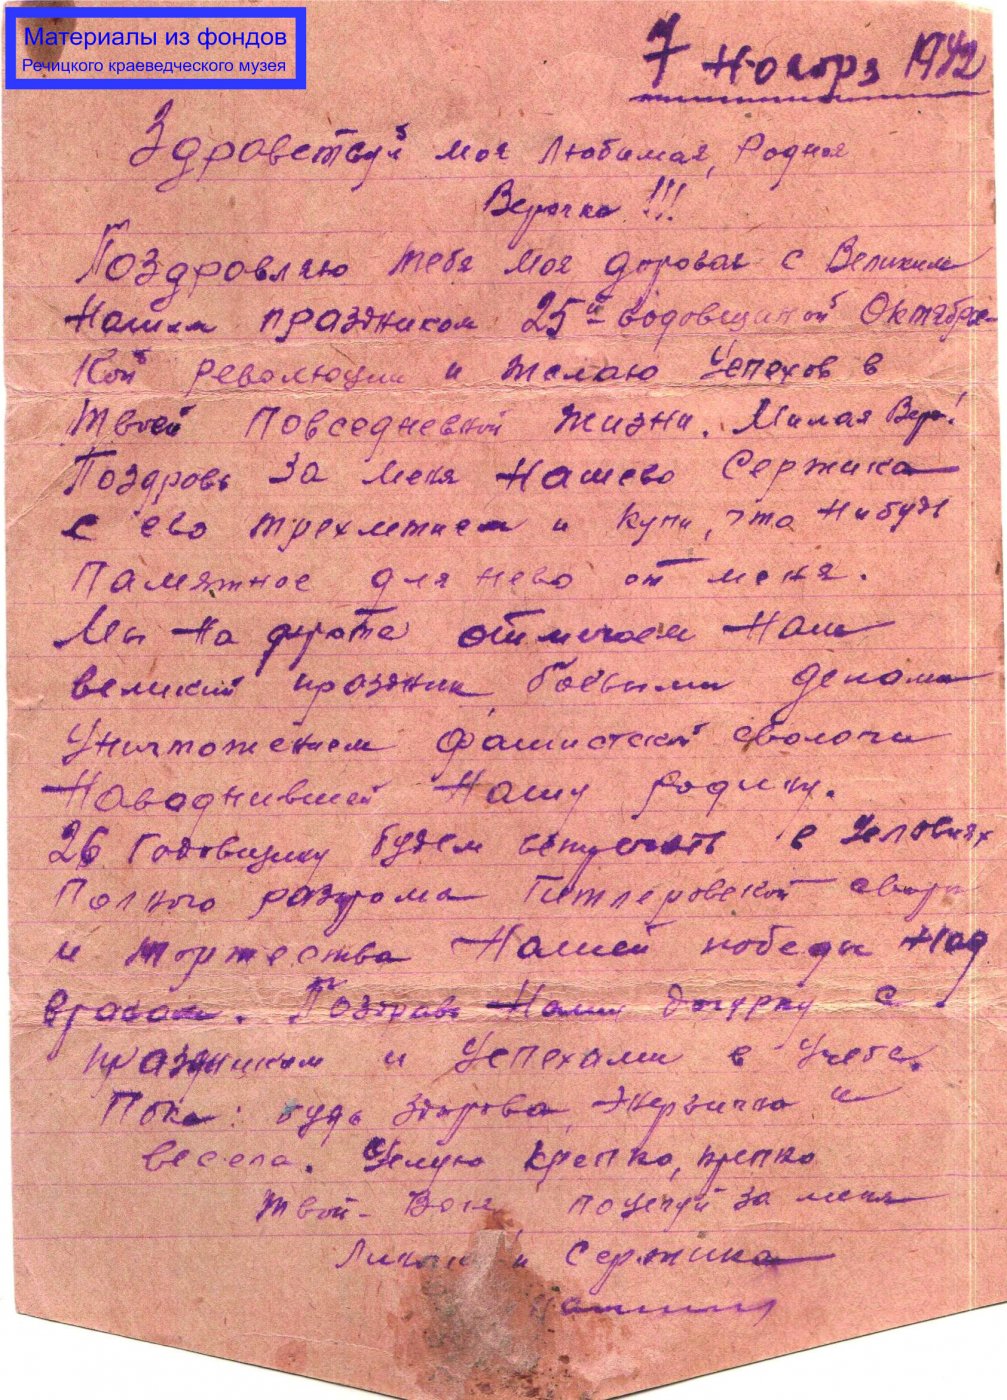 Материалы из фондов
Речицкого краеведческого музея
7 Ноября 1942
Здравствуй моя Любимая, Родная
Верочка!!!
Поздровляю тебя моя дорогая с Великим
Нашим праздником 25й годовщиной Октябрс-
Кой революции и желаю Успехов в
Твоей Повседневной жизни. Милая Вера!
Поздравь За меня Нашего Сержика
с его трехлетием и купи, что Нибудь
Памятное для него от меня.
Мы На фронте отмечаем Наш
великий праздник боевыми делами
Уничтожением фашистской сволочи
Наводнившей Нашу родину.
26 Годовщину будем встречать в Условиях
Полного разгрома Гитлеровской своры
и торжества Нашей победы Над
врагом. Поздравь Нашу дочурку с
праздником и Успехами в Учебе.
Пока: будь здорова, Энергична и
весела. Целую Крепко, крепко
твой поцелуй за меня
и Сержика